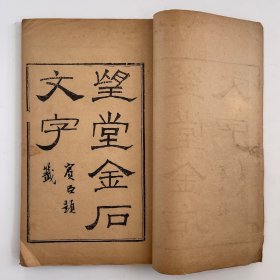 望堂金石
文字
賓名題
籤